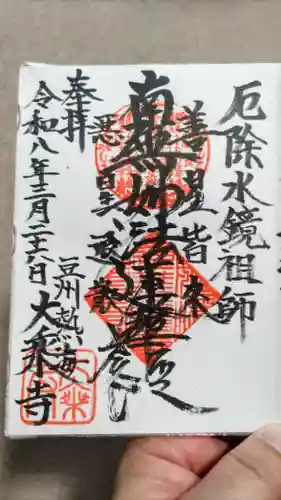 厄除水鏡祖師
善星皆来
南無妙法蓮華経
悪星退散
奉拝
豆州熱海
令和八年三月二十八日 大乗寺